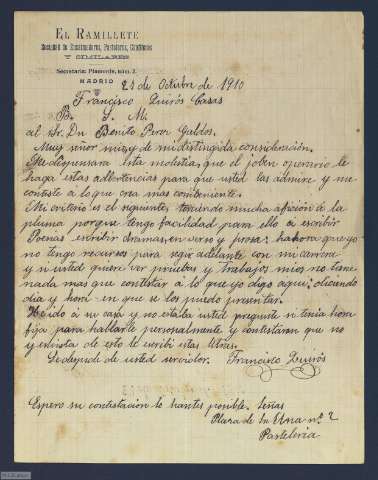 EL RAMILLETE
Sociedad de Encalnadores, Pasteleros, Confiteros
Y SIMILARES
Secretaría: Piamonte, núm. 2.
MADRID
25 de Octubre de 1910
Francisco Quirós Casas
B. S. M.
al Sr. Dn Benito Perez Galdós.
Muy señor mio y de mi distinguida consideración.
Me dispensara esta molestia que el joben operario le
haga estas advertencias para que usted las admire y me
conteste a lo que crea mas combeniente.
Mi criterio es el siguiente, teniendo mucha afición á la
pluma porque tengo facilidad para ello a escribir
Poemas escribir dramas, en verso y prosa: hahora que yo
no tengo recursos para segir adelante con mi carrera
y si usted quiere ver pruebas y trabajos mios no tiene
nada mas que contestar á lo que yo digo aqui; diciendo
dia y hora en que se los puedo presentar.
He ido á su casa y no estaba usted pregunte si tenia hora
fija para hablarle personalmente y contestaron que no
y en vista de esto le escribi estas letras.
Se despide de usted servidor. Francisco Quirós
Espero su contestacion lo hantes posible. Señas
Plaza de la nº 2
Pasteleria